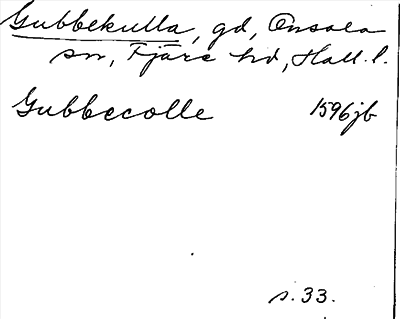 Gubbekulla, gd, Onsala
sn, Fjäre hd, Hall. l.
Gubbecolle 1596 jb
s. 33.